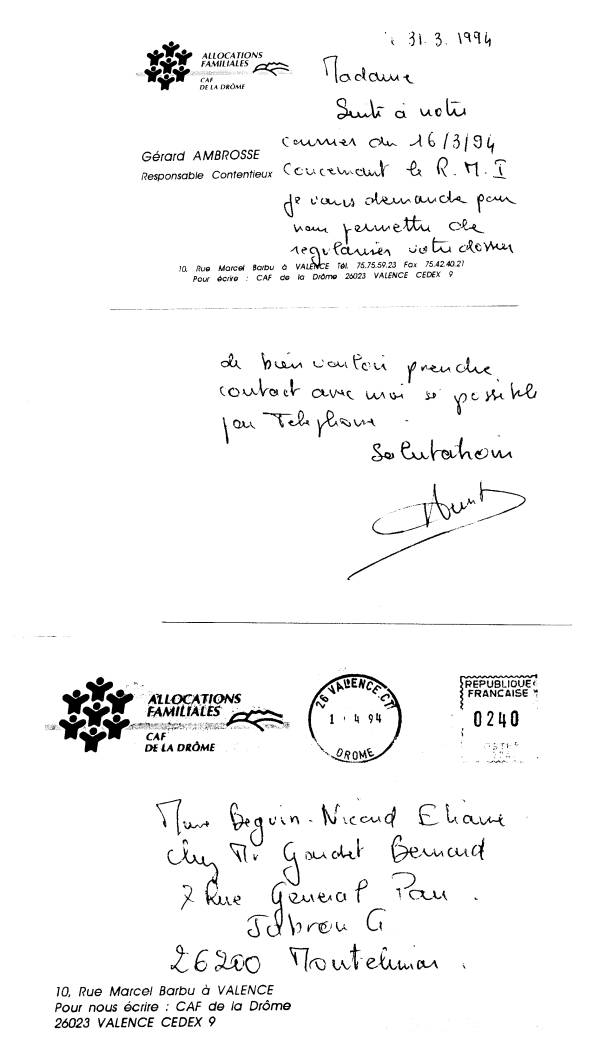 31.3.1994
ALLOCATIONS
FAMILIALES
CAF
DE LA DRÔME
Madame
Suite à notre
courrier du 16/3/94
Gérard AMBROSSE
concernant le R.M.I
Responsable Contentieux
je vous demande pour
nous permettre de
regulariser votre dossier
10, Rue Marcel Barbu à VALENCE Tél. 75.75.59.23 Fax 75.42.40.21
Pour écrire : CAF de la Drôme 26023 VALENCE CEDEX 9
de bien vouloir prendre
contact avec moi si possible
par Telephone.
Salutations
ALLOCATIONS
FAMILIALES
CAF
DE LA DRÔME
26 VALENCE CTT
1 4 94
DROME
REPUBLIQUE
FRANCAISE
0240
Mme Beguin-Nicoud Eliane
Chez Mr Goudet Bernard
7 Rue General Pau.
Jabron G
26200 Montelimar.
10, Rue Marcel Barbu à VALENCE
Pour nous écrire : CAF de la Drôme
26023 VALENCE CEDEX 9